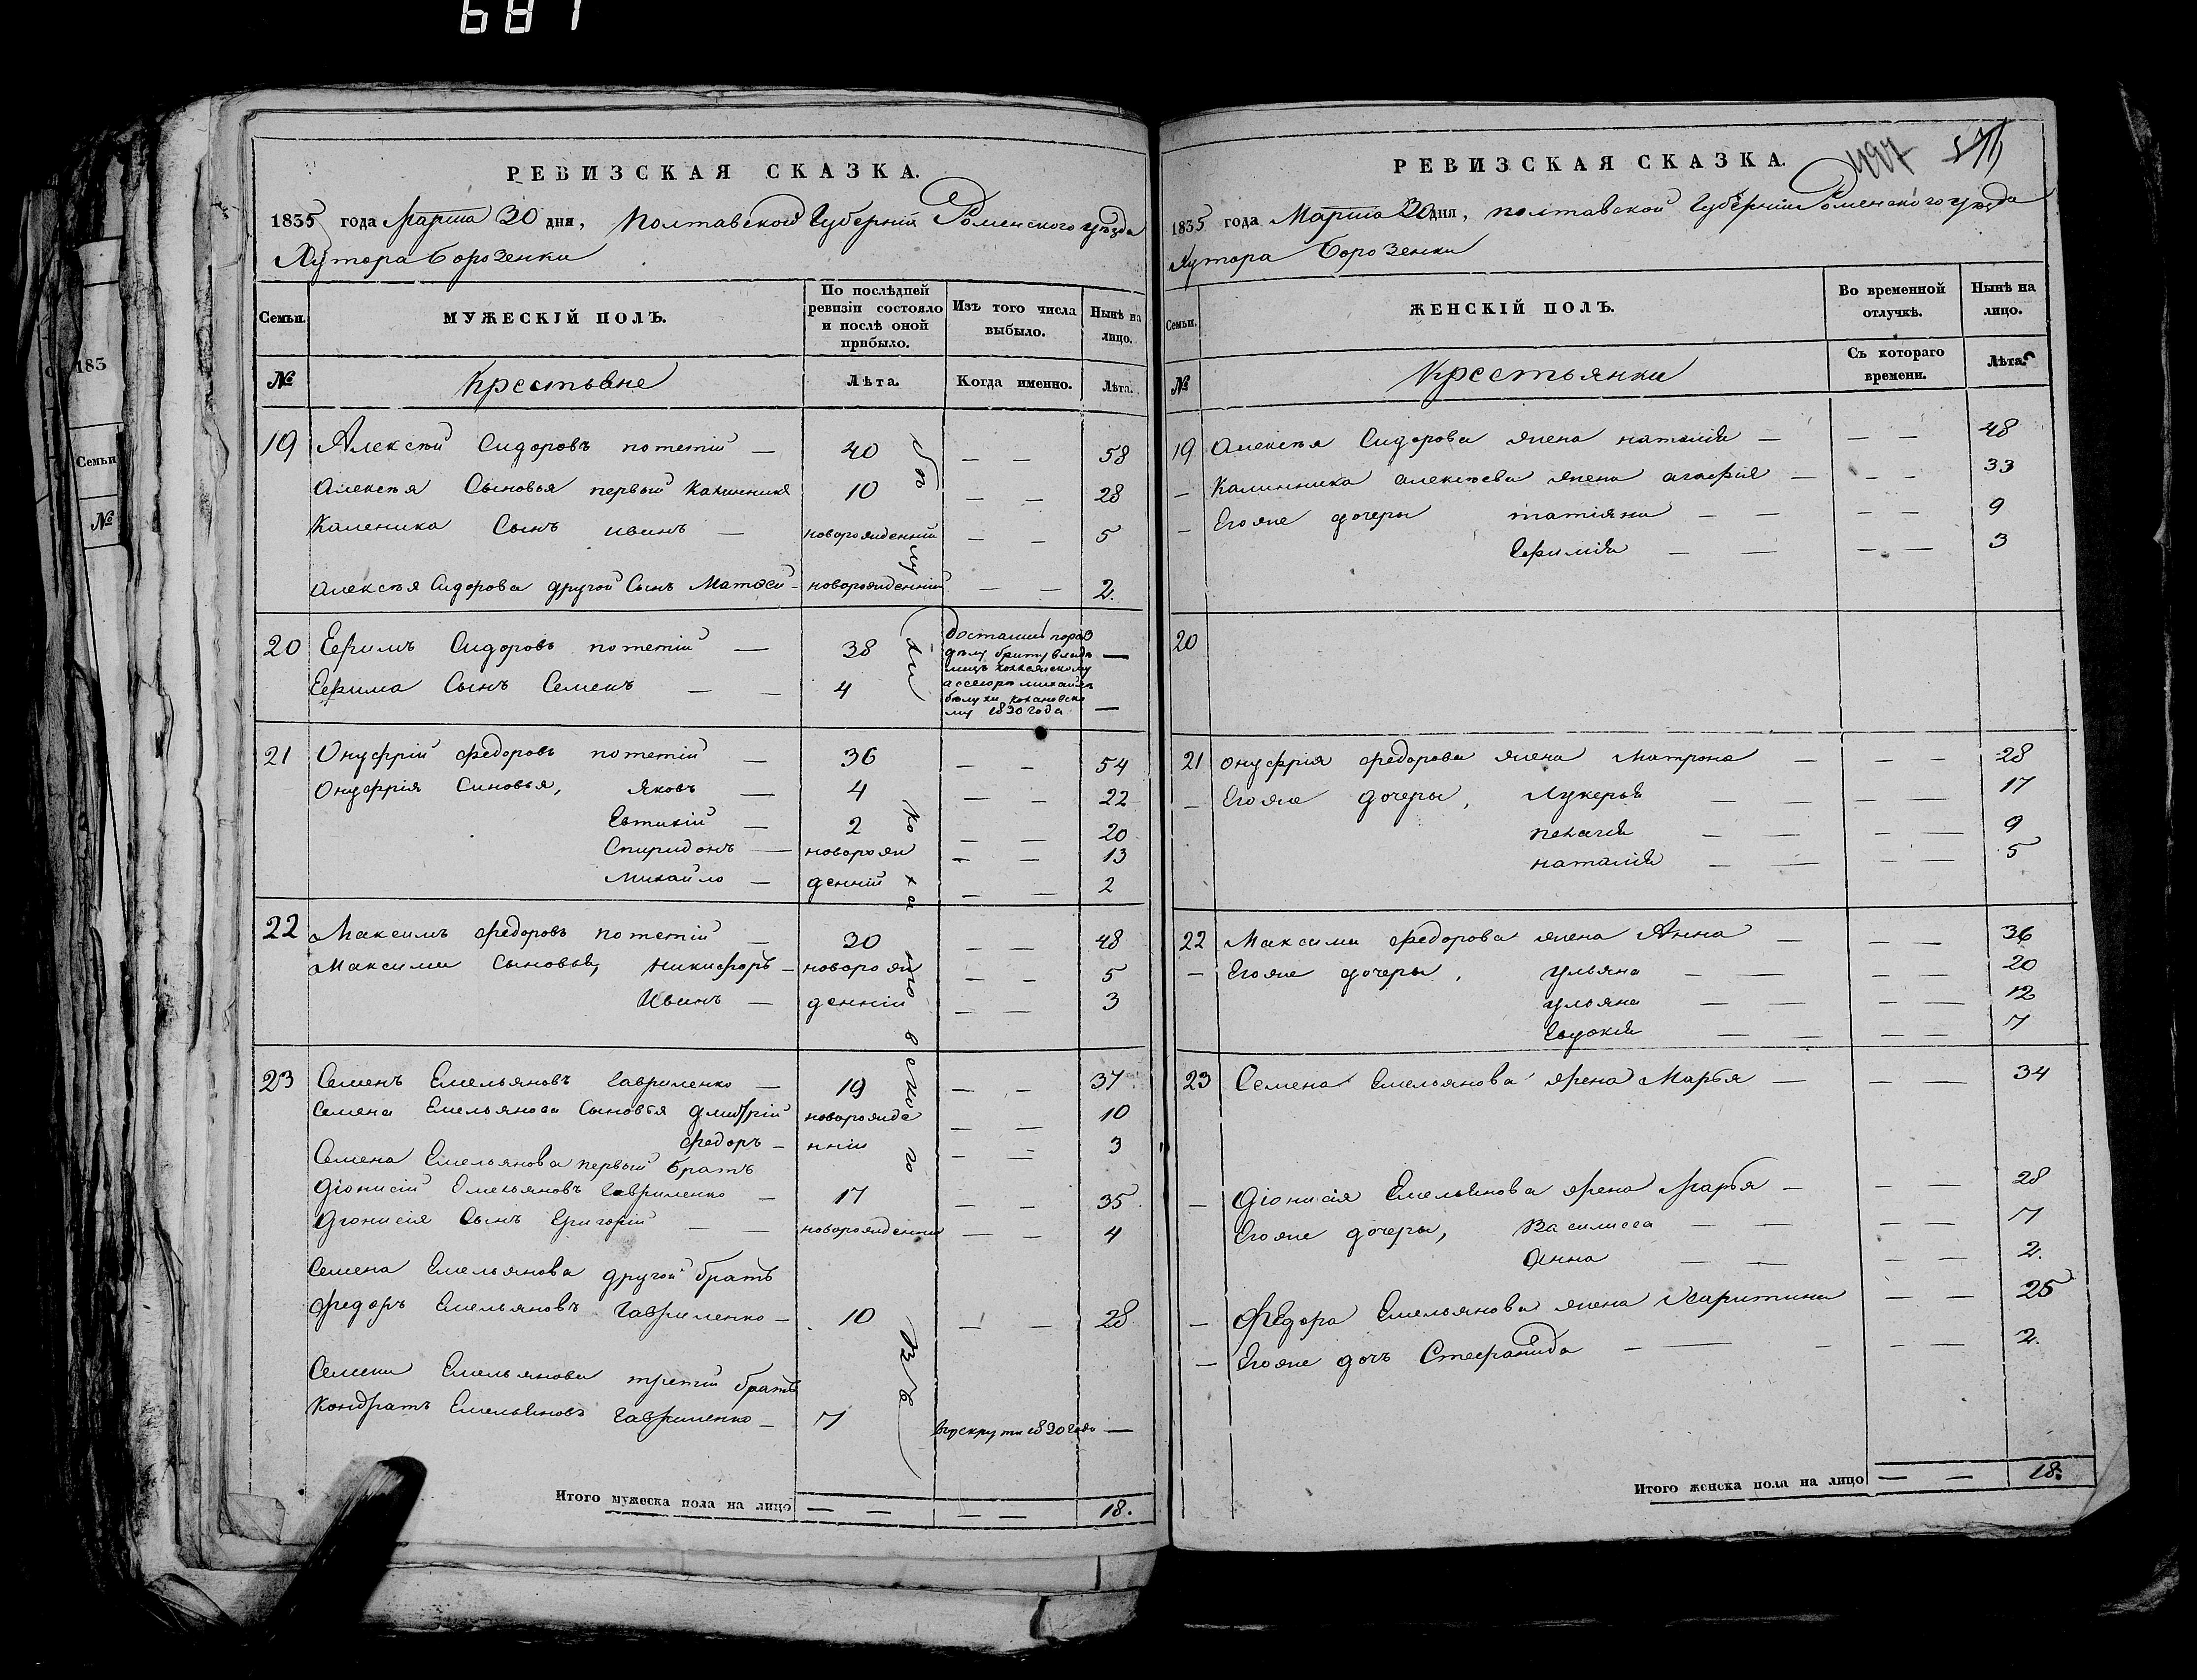 687
РЕВИЗСКАЯ СКАЗКА.
1835 года Марта 30 дня, Полтавской Губерній Роменского уѣзда
Хутора Борозенки
Семьи. МУЖЕСКІЙ ПОЛЪ. По послѣдней ревизіи состояло и послѣ оной прибыло. Изъ того числа выбыло. Нынѣ на лицо.
№ Крестьяне Лѣта. Когда именно. Лѣта.
19 Алексѣй Сидоровъ потетій — 40 — — 58
Алексѣя Сыновья первый Калинникъ 10 — — 28
Каленика Сынъ иванъ — новорожденній — — 5
Алексѣя Сидорова другой Сынъ Матѳей — новорожденній — — 2.
20 Ефимъ Сидоровъ потетій — 38 —
Ефима Сынъ Семенъ — — 4 —
1830 года
21 Онуфрій федоровъ потетій — 36 — — 54
Онуфрія Синовья, Яковъ — 4 — — 22
Евтихій — 2 — — 20
Спиридонъ — новорож — — 13
Михайло — денній — — 2
22 Максимъ федоровъ потетій — 30 — — 48
Максима Сыновья, Никифоръ — новорож — — 5
Иванъ — денній — — 3
23 Семенъ Емельяновъ Гавриленко — 19 — — 37
Семена Емельянова Сыновья дмитрій новорожде — — 10
федоръ — нній — — 3
Семена Емельянова первый братъ
Діонисій Емельяновъ Гавриленко — 17 — — 35
Діонисія Сынъ Григорій — — новорожденній — — 4
Семена Емельянова другой братъ
федоръ Емельяновъ Гавриленко — 10 — — 28
Семена Емельянова третій братъ
Кондратъ Емельяновъ Гавриленко — 7 Врекруты 1830 года —
Итого мужеска пола на лицо — — — — 18.
497
РЕВИЗСКАЯ СКАЗКА.
1835 года Марта 30 дня, полтавской Губерніи Роменского уѣзда
Хутора Борозенки
Семьи. ЖЕНСКІЙ ПОЛЪ. Во временной отлучкѣ. Нынѣ на лицо.
№ Крестьянки Съ котораго времени. Лѣта.
19 Алексѣя Сидорова жена наталія — — — 48
— Калинника алексѣева жена агафія — — — 33
— Егоже дочеры татіяна — — — — 9
Ефимія — — — — 3
20
21 онуфрія федорова жена Матрона — — — 28
— Егоже дочеры, Лукерья — — — — 17
пелагія — — — — 9
наталія — — — — 5
22 Максима федорова жена Анна — — — 36
— Егоже дочеры, ульяна — — — — 20
ульяна — — — — 12
Евдокія — — — — 7
23 Семена Емельянова жена Марья — — — 34
— Діонисія Емельянова жена Марья — — — 28
Егоже дочеры, Василисса — — — — 7
Анна — — — — 2.
— Федора Емельянова жена Харитина — — 25
— Егоже дочъ Стефанида — — — — 2.
Итого женска пола на лицо — — 18.
183
Семьи
№